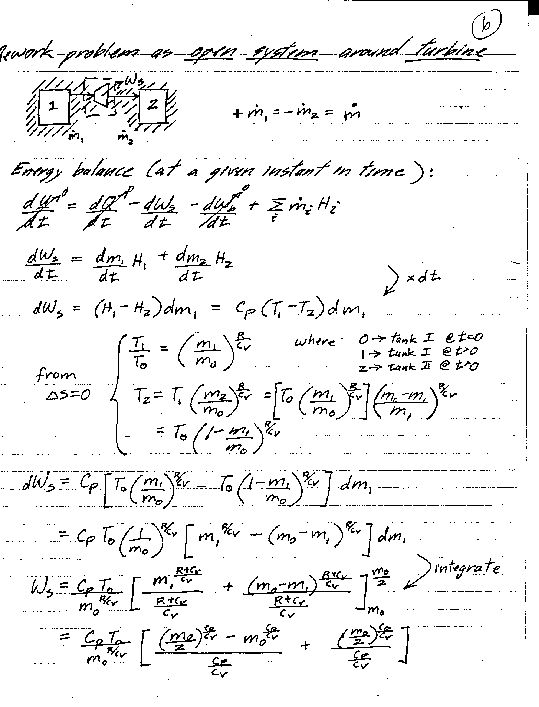 6
Rework problem as open system around turbine
1 Ws 2
ṁ₁ ṁ₂
+ṁ₁ = -ṁ₂ = ṁ
Energy balance (at a given instant in time):
dU/dt⁰ = dQ/dt⁰ - dWs/dt - dWb/dt⁰ + Σᵢ ṁᵢ Hᵢ
dWs/dt = dm₁/dt H₁ + dm₂/dt H₂
x dt
dWs = (H₁-H₂)dm₁ = Cp(T₁-T₂)dm₁
from ΔS=0
T₁/T₀ = (m₁/m₀)^(R/Cv)
where 0 → tank I @ t=0
1 → tank I @ t>0
2 → tank II @ t>0
T₂ = T₁(m₂/m₁)^(R/Cv) = [T₀(m₁/m₀)^(R/Cv)](m₀-m₁/m₁)^(R/Cv)
= T₀(1-m₁/m₀)^(R/Cv)
dWs = Cp[T₀(m₁/m₀)^(R/Cv) - T₀(1-m₁/m₀)^(R/Cv)] dm₁
= Cp T₀(1/m₀)^(R/Cv) [m₁^(R/Cv) - (m₀-m₁)^(R/Cv)] dm₁
integrate
Ws = Cp T₀/m₀^(R/Cv) [m₁^(R+Cv/Cv)/(R+Cv/Cv) + (m₀-m₁)^(R+Cv/Cv)/(R+Cv/Cv)] m₀/2 m₀
= Cp T₀/m₀^(R/Cv) [((m₀/2)^(Cp/Cv) - m₀^(Cp/Cv))/(Cp/Cv) + (m₀/2)^(Cp/Cv)/(Cp/Cv)]